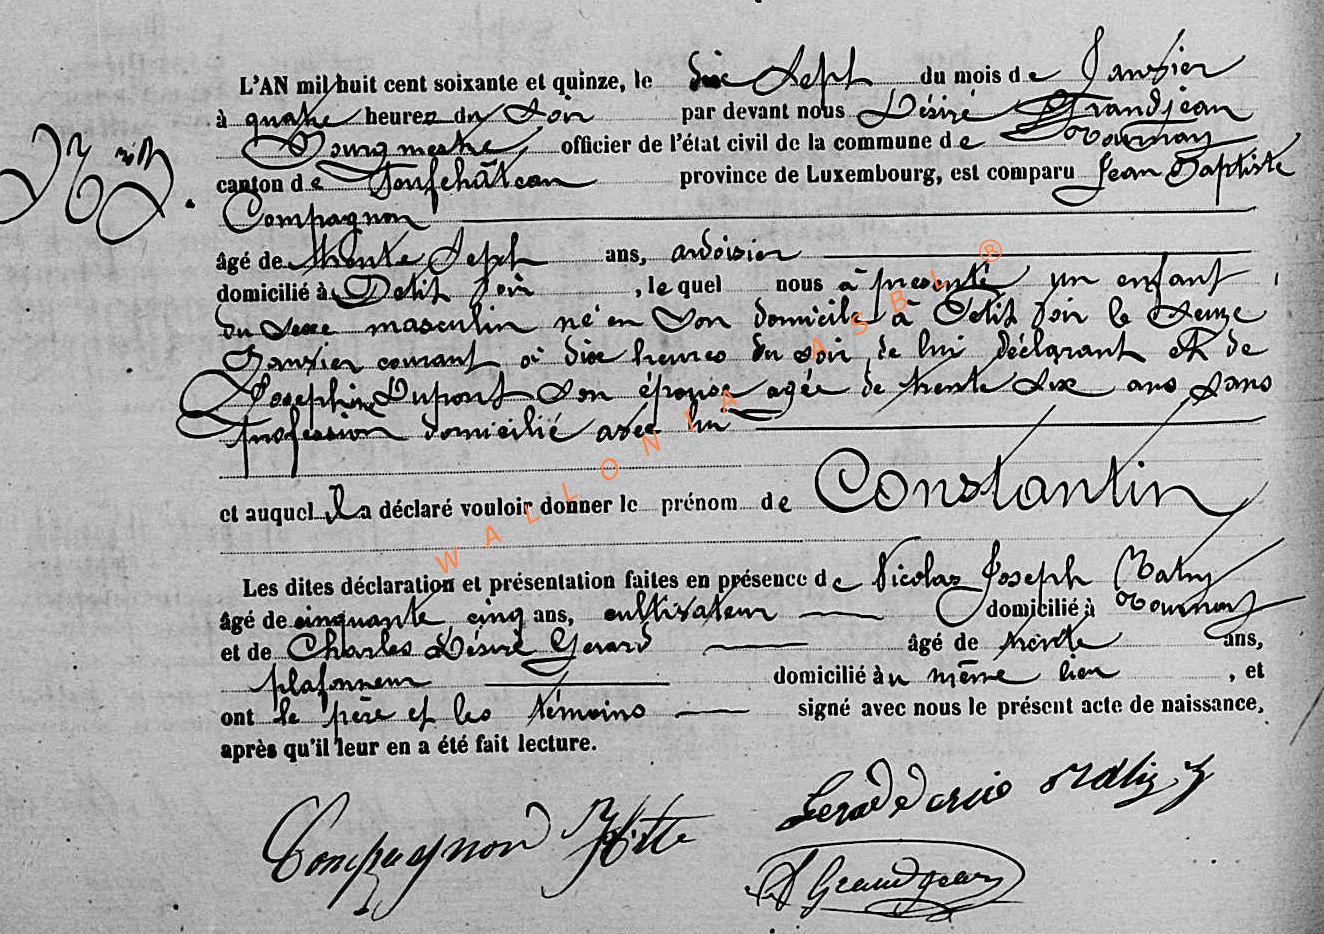 L'AN mil huit cent soixante et quinze, le dix Sept du mois de Janvier
à quatre heures du Soir par devant nous Désiré Grandjean
Bourgmestre, officier de l'état civil de la commune de Tournay
canton de Neufchâteau province de Luxembourg, est comparu Jean Baptiste
Compagnon
âgé de trente Sept ans, ardoisier
domicilié à Petit Voir, le quel nous à présenté un enfant
du Sexe masculin né en Son domicile à Petit Voir le Seize
Janvier courant à dix heures du soir, de lui déclarant et de
Josephine Dupont Son épouse agée de trente Six ans Sans
profession domicilié avec lui
et auquel Il a déclaré vouloir donner le prénom de Constantin
Les dites déclaration et présentation faites en présence de Nicolas Joseph Mathy
âgé de cinquante cinq ans, cultivateur domicilié à Tournay
et de Charles Désiré Gerard âgé de trente ans,
plafonneur domicilié au même lieu, et
ont le père et les témoins signé avec nous le présent acte de naissance,
après qu'il leur en a été fait lecture.
Compagnon
D Grandjean
WALLONIA ASBL ®